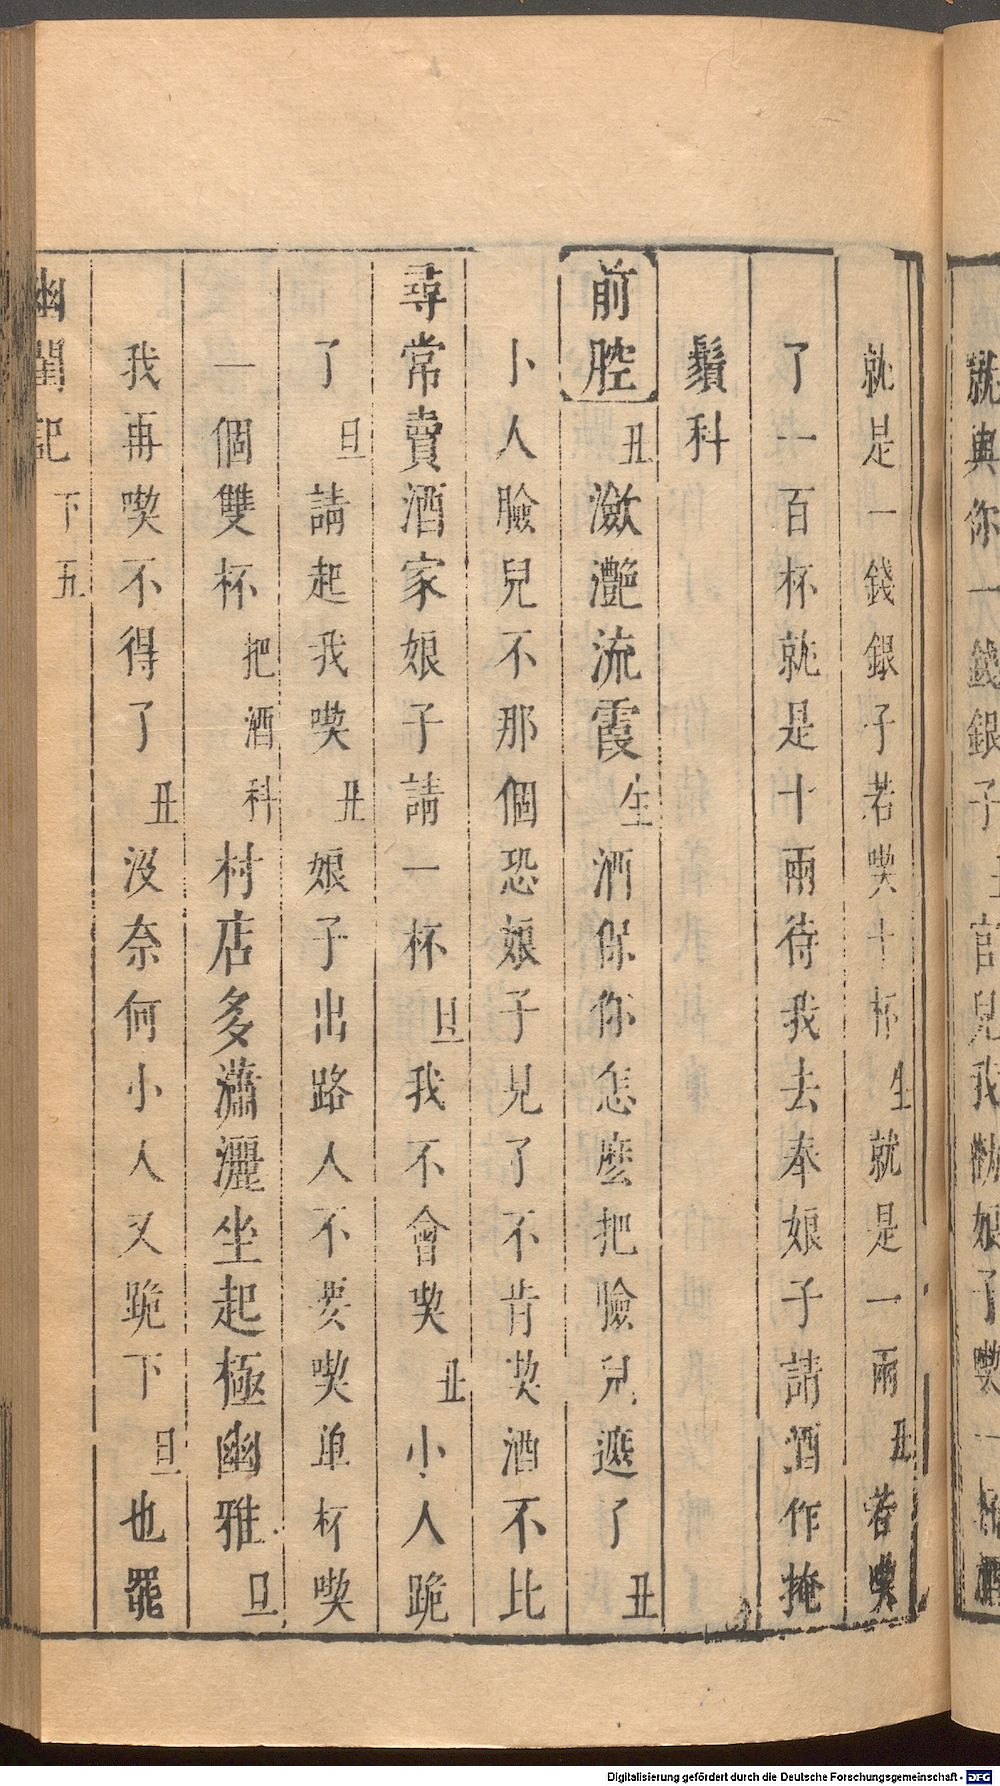 就與你一錢銀子丑官兒我勸娘子喫一杯酒
就是一錢銀子若喫十杯生就是一兩丑若喫
了一百杯就是十兩待我去奉娘子請酒作掩
鬚科
前腔丑瀲灧流霞生酒保你怎麽把臉兒遮了丑
小人臉兒不那個恐娘子見了不肯喫酒不比
尋常賣酒家娘子請一杯旦我不會喫丑小人跪
了旦請起我喫丑娘子出路人不要喫单杯喫
一個雙杯把酒科村店多瀟灑坐起極幽雅旦
我再喫不得了丑沒奈何小人又跪下旦也罷
幽閨記下五
Digitalisierung gefördert durch die Deutsche Forschungsgemeinschaft - DFG